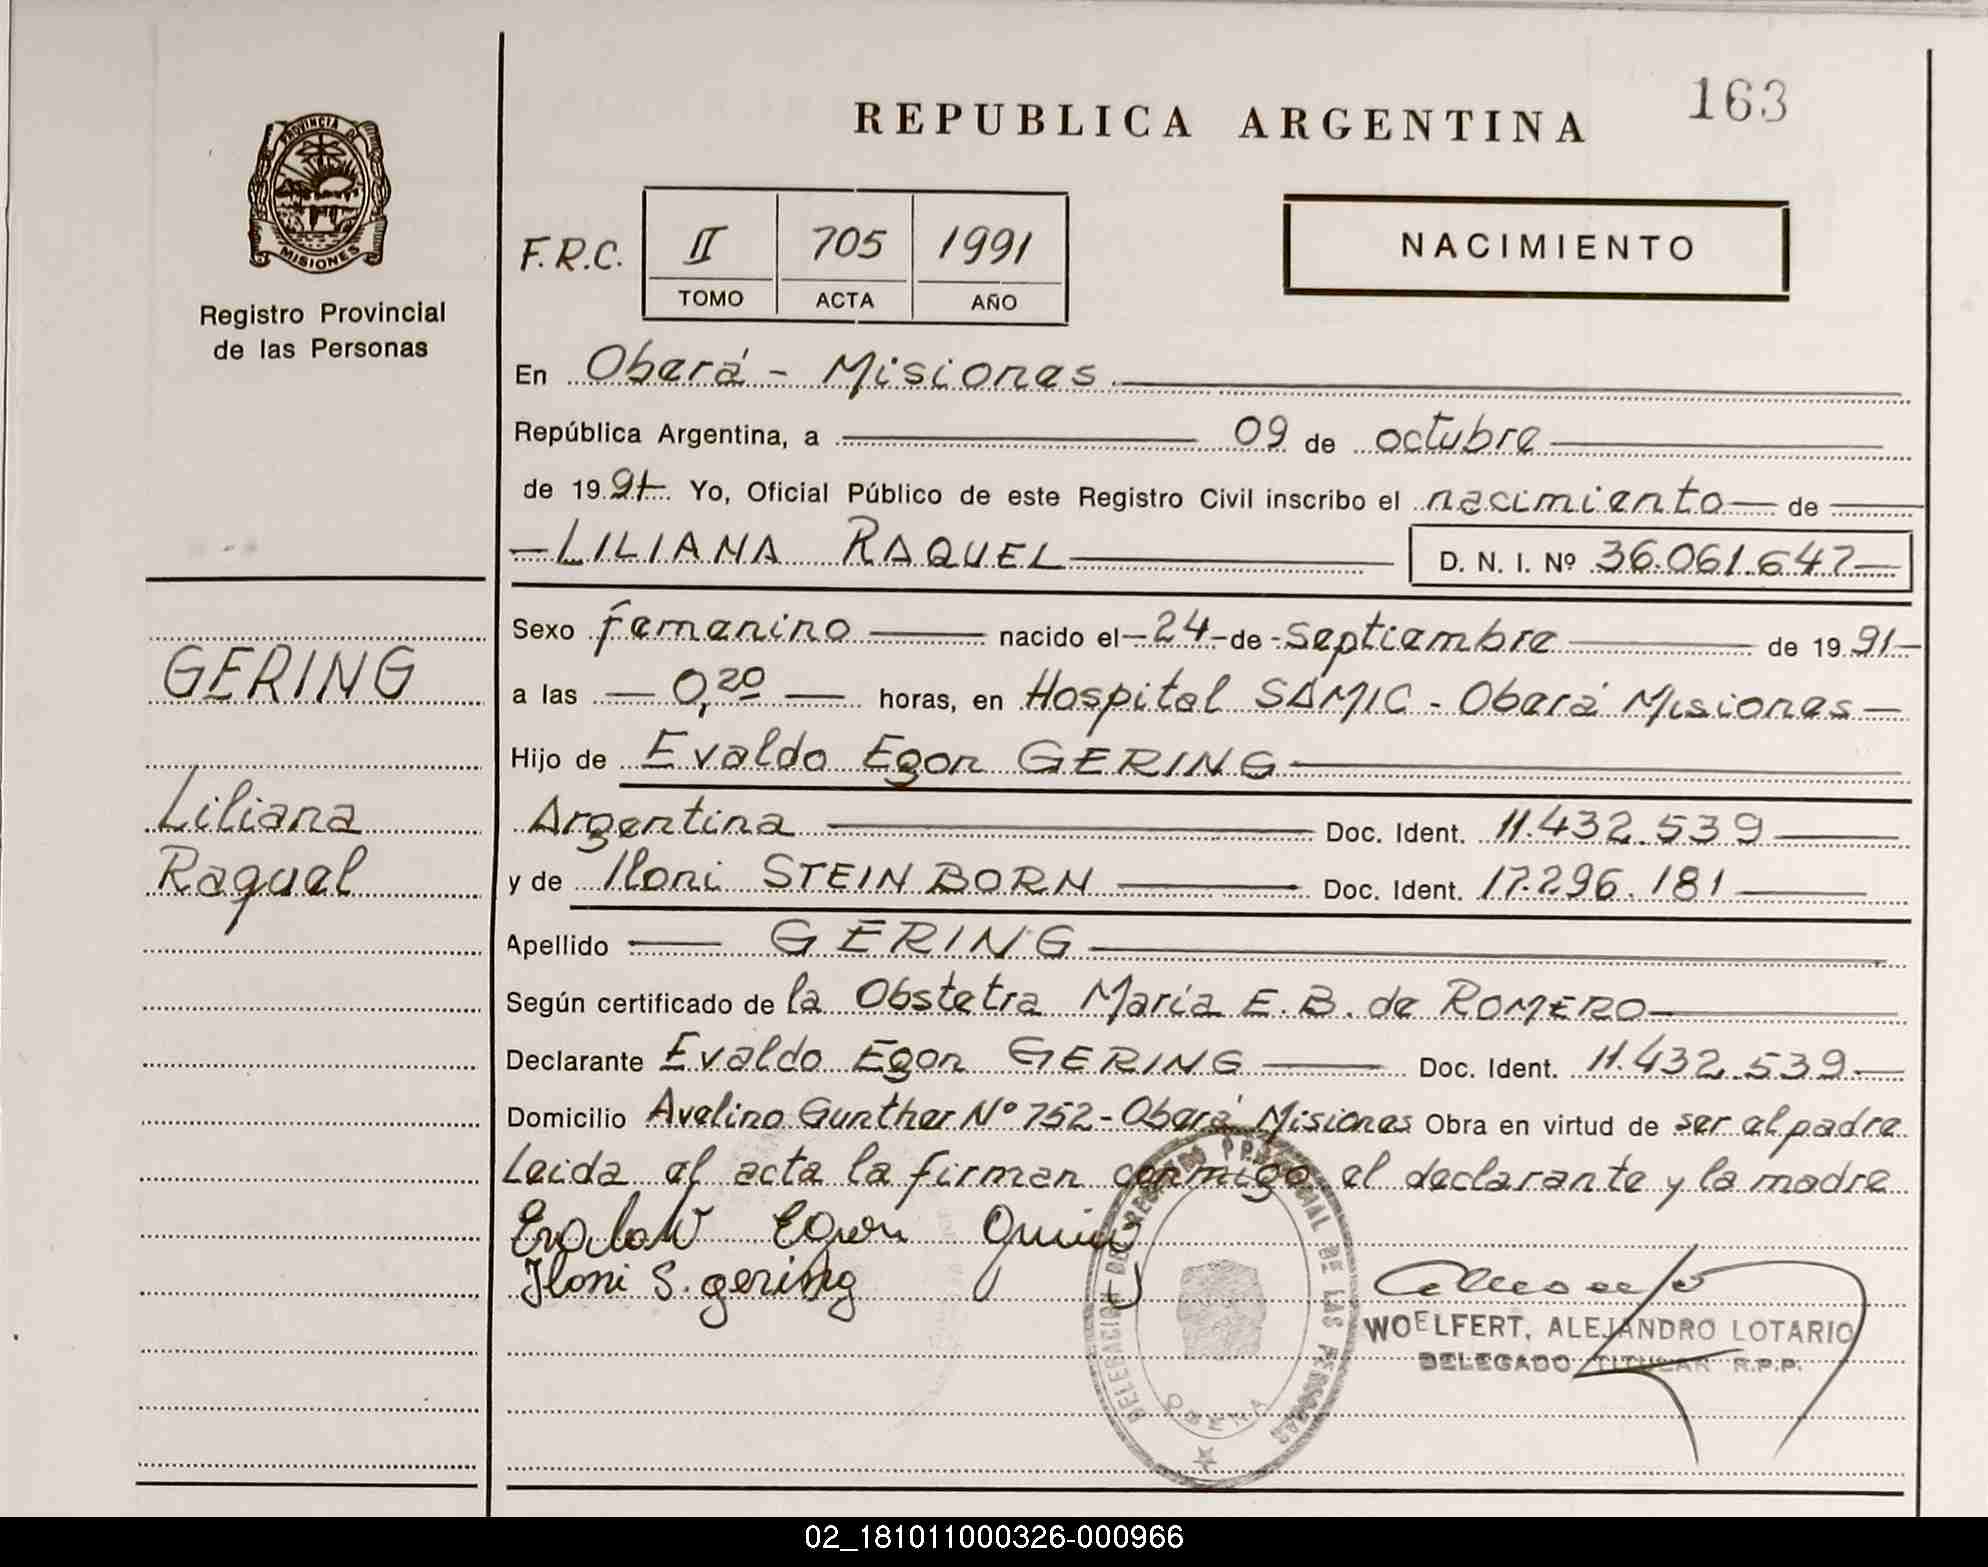 REPUBLICA ARGENTINA
163
PROVINCIA DE
MISIONES
Registro Provincial
de las Personas
F.R.C.
II 705 1991
TOMO ACTA AÑO
NACIMIENTO
En Oberá - Misiones
República Argentina, a 09 de octubre
de 1991 Yo, Oficial Público de este Registro Civil inscribo el nacimiento de
LILIANA RAQUEL
D. N. I. Nº 36.061.647
GERING
Liliana
Raquel
Sexo femenino nacido el 24 de septiembre de 1991
a las 0,20 horas, en Hospital SAMIC - Oberá Misiones
Hijo de Evaldo Egon GERING
Argentina Doc. Ident. 11.432.539
y de Iloni STEINBORN Doc. Ident. 17.296.181
Apellido GERING
Según certificado de la Obstetra María E.B. de ROMERO
Declarante Evaldo Egon GERING Doc. Ident. 11.432.539
Domicilio Avelino Gunther Nº 752 - Oberá Misiones Obra en virtud de ser el padre
Leida el acta la firman conmigo el declarante y la madre
Iloni S. gering
DELEGACION DEL REGISTRO PROVINCIAL DE LAS PERSONAS
OBERA
WOELFERT, ALEJANDRO LOTARIO
DELEGADO TITULAR R.P.P.
02_181011000326-000966